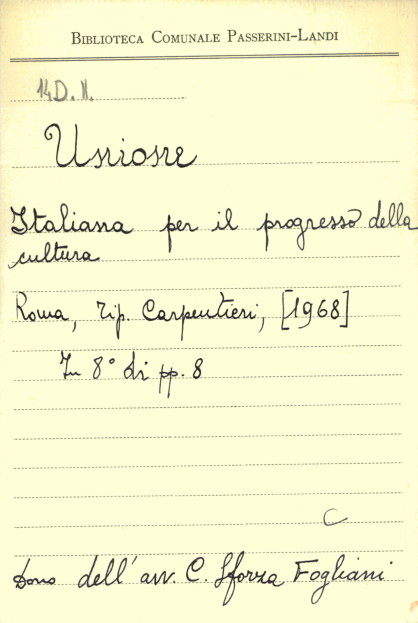 BIBLIOTECA COMUNALE PASSERINI-LANDI
14.D.N.
Unione
Italiana per il progresso della
cultura
Roma, Tip. Carpentieri, [1968]
In 8° di pp. 8
C
Dono dell'avv. C. Sforza Fogliani